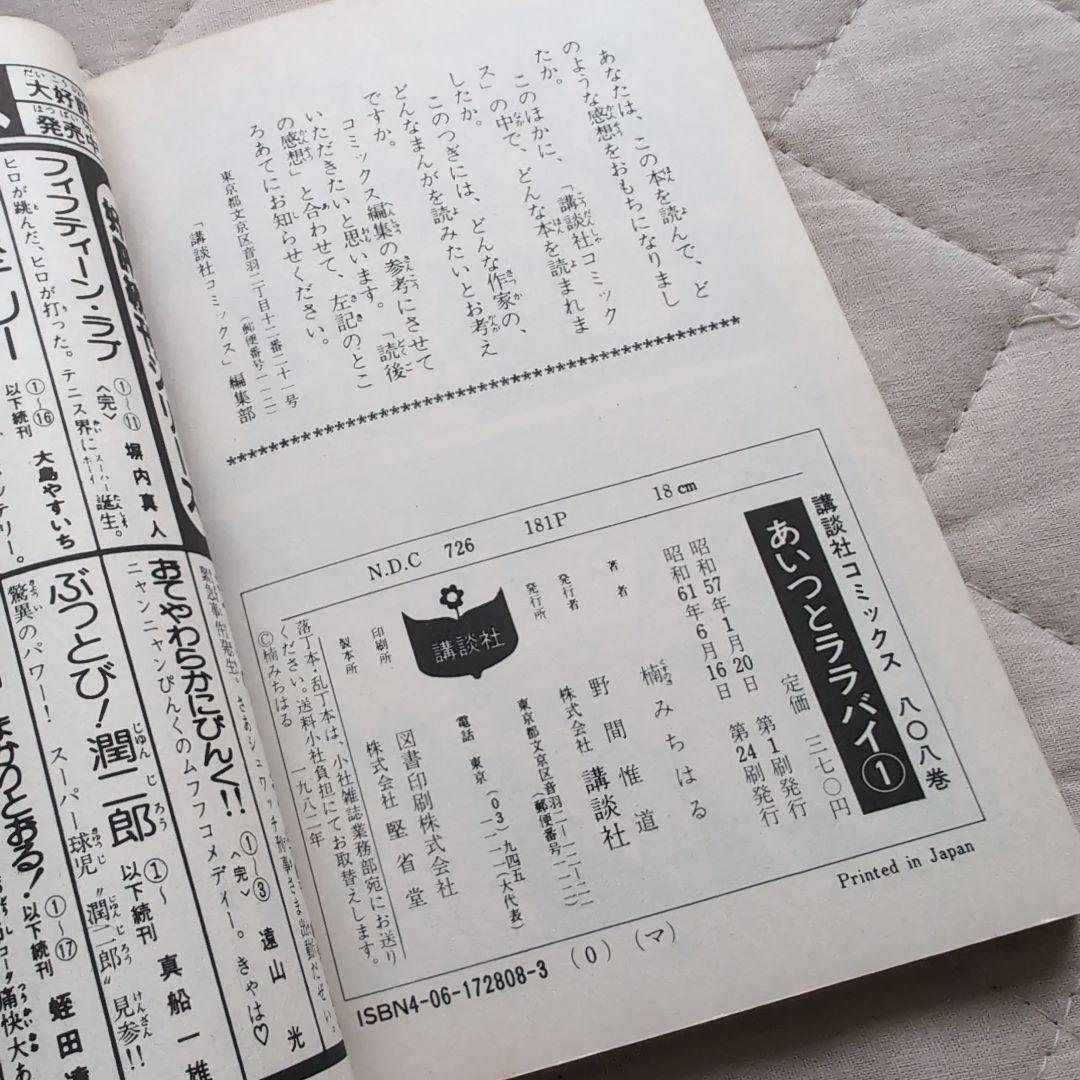 あなたは、この本を読んで、ど
のような感想をおもちになりまし
たか。
このほかに、「講談社コミック
ス」の中で、どんな本を読まれま
したか。
このつぎには、どんな作家の、
どんなまんがを読みたいとお考え
ですか。
コミックス編集の参考にさせて
いただきたいと思います。「読後
の感想」と合わせて、左記のとこ
ろあてにお知らせください。
東京都文京区音羽二丁目十二番二十一号
(郵便番号一一二)
「講談社コミックス」編集部
講談社コミックス 八〇八巻
あいつとララバイ①
定価 三七〇円
昭和57年1月20日 第1刷発行
昭和61年6月16日 第24刷発行
著者 楠みちはる
発行者 野間惟道
発行所 株式会社 講談社
東京都文京区音羽二ー一二ー二一
(郵便番号一一二)
電話 東京(03)九四五ー一一一一(大代表)
講談社
印刷所 図書印刷株式会社
製本所 株式会社 堅省堂
落丁本・乱丁本は、小社雑誌業務部宛にお送り
ください。送料小社負担にてお取替えします。
©楠みちはる 一九八二年
N.D.C 726 181P 18cm
Printed in Japan
ISBN4-06-172808-3 (0) (マ)
発売中
フィフティーン・ラブ
①〜⑪ 〈完〉 塀内真人
ヒロが跳んだ、ヒロが打った。テニス界にスーパーボーイ誕生。
①〜⑯ 以下続刊 大島やすいち
おてやわらかにぴんく!!
①〜③ 〈完〉 遠山 光
ニャンニャンぴんくのムフフコメディー。きゃは♡
ぶっとび!潤二郎
①〜 以下続刊 真船一雄
驚異のパワー! スーパー球児“潤二郎”見参!!
まけのとおる!
①〜⑰ 以下続刊